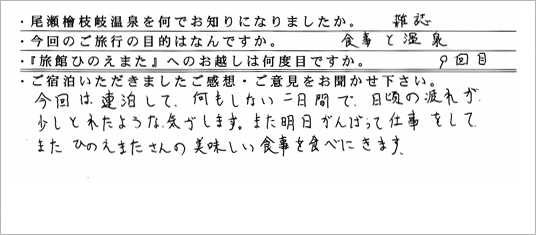 ・尾瀬檜枝岐温泉を何でお知りになりましたか。 雑誌
・今回のご旅行の目的はなんですか。 食事と温泉
・『旅館ひのえまた』へのお越しは何度目ですか。 9回目
・ご宿泊いただきましたご感想・ご意見をお聞かせ下さい。
今回は連泊して、何もしない二日間で、日頃の疲れが
少しとれたような気がします。また明日がんばって仕事をして
またひのえまたさんの美味しい食事を食べにきます。